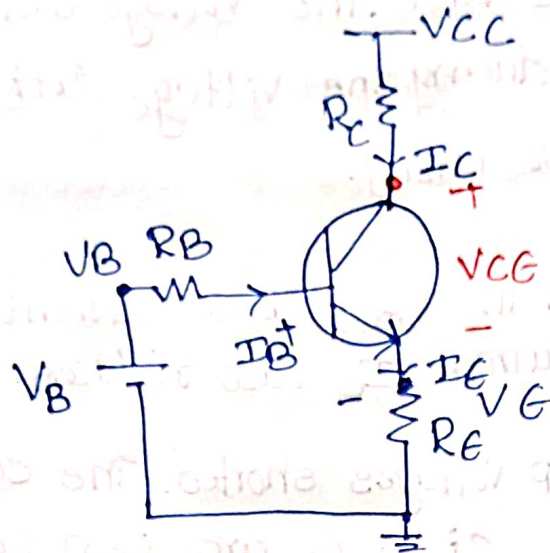 VCC
RC
IC
+
VB RB
VCE
IB
+
-
VB
IE
-
VE
RE